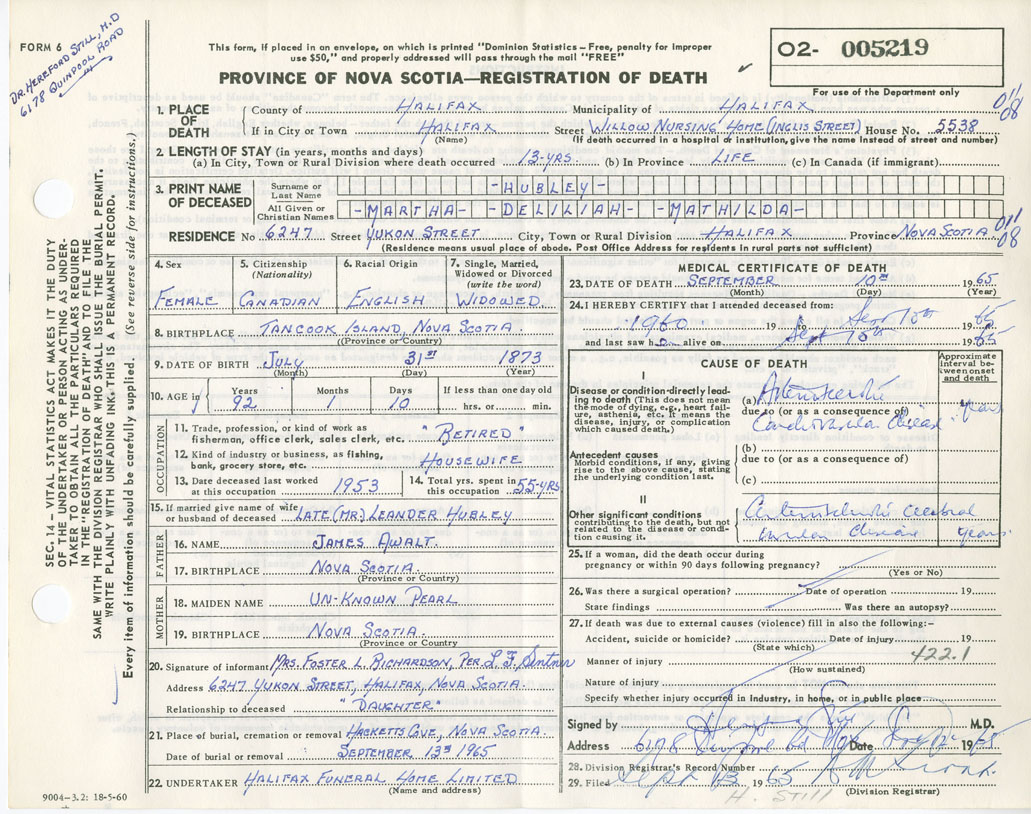 FORM 6
DR. HEREFORD STILL, M.D
6178 QUINPOOL ROAD
This form, if placed in an envelope, on which is printed "Dominion Statistics – Free, penalty for improper
use $50," and properly addressed will pass through the mail "FREE"
PROVINCE OF NOVA SCOTIA—REGISTRATION OF DEATH
O2- 005219
For use of the Department only
011
08
1. PLACE OF DEATH
County of HALIFAX Municipality of HALIFAX
If in City or Town HALIFAX Street WILLOW NURSING HOME (INGLIS STREET) House No. 5538
(Name) (If death occurred in a hospital or institution, give the name instead of street and number)
2. LENGTH OF STAY (in years, months and days)
(a) In City, Town or Rural Division where death occurred 13-YRS. (b) In Province LIFE (c) In Canada (if immigrant)
3. PRINT NAME OF DECEASED
Surname or Last Name -HUBLEY-
All Given or Christian Names -MARTHA- -DELILIAH- -MATHILDA-
RESIDENCE No 6247 Street YUKON STREET City, Town or Rural Division HALIFAX Province NOVA SCOTIA
011
08
(Residence means usual place of abode. Post Office Address for residents in rural parts not sufficient)
4. Sex
FEMALE
5. Citizenship
(Nationality)
CANADIAN
6. Racial Origin
ENGLISH
7. Single, Married,
Widowed or Divorced
(write the word)
WIDOWED
8. BIRTHPLACE TANCOOK ISLAND, NOVA SCOTIA.
(Province or Country)
9. DATE OF BIRTH JULY 31ST 1873
(Month) (Day) (Year)
10. AGE in
Years Months Days If less than one day old
92 1 10 hrs. or min.
OCCUPATION
11. Trade, profession, or kind of work as
fisherman, office clerk, sales clerk, etc. "RETIRED"
12. Kind of industry or business, as fishing,
bank, grocery store, etc. HOUSEWIFE
13. Date deceased last worked
at this occupation 1953
14. Total yrs. spent in
this occupation 55-YRS
15. If married give name of wife
or husband of deceased LATE (MR.) LEANDER HUBLEY
FATHER
16. NAME JAMES AWALT.
17. BIRTHPLACE NOVA SCOTIA
(Province or Country)
MOTHER
18. MAIDEN NAME UN-KNOWN PEARL
19. BIRTHPLACE NOVA SCOTIA.
(Province or Country)
20. Signature of informant MRS. FOSTER L. RICHARDSON, PER
Address 6247 YUKON STREET, HALIFAX, NOVA SCOTIA.
Relationship to deceased "DAUGHTER"
21. Place of burial, cremation or removal HACKETTS COVE, NOVA SCOTIA.
Date of burial or removal SEPTEMBER 13th 1965
22. UNDERTAKER HALIFAX FUNERAL HOME LIMITED
(Name and address)
9004–3.2: 18-5-60
MEDICAL CERTIFICATE OF DEATH
23. DATE OF DEATH SEPTEMBER 10th 1965
(Month) (Day) (Year)
24. I HEREBY CERTIFY that I attended deceased from:
1960 19 to Sept 10th 1965
and last saw h alive on Sept 10th 1965
CAUSE OF DEATH
Approximate
interval be-
tween onset
and death
I
Disease or condition directly lead-
ing to death (This does not mean
the mode of dying, e.g., heart fail-
ure, asthenia, etc. It means the
disease, injury, or complication
which caused death.)
(a) Arteriosclerotic years
due to (or as a consequence of)
Cardiovascular disease
Antecedent causes
Morbid conditions, if any, giving
rise to the above cause, stating
the underlying condition last.
(b)
due to (or as a consequence of)
(c)
II
Other significant conditions
contributing to the death, but not
related to the disease or condi-
tion causing it.
Arteriosclerotic cerebral
vascular disease years
25. If a woman, did the death occur during
pregnancy or within 90 days following pregnancy?
(Yes or No)
26. Was there a surgical operation? Date of operation 19
State findings Was there an autopsy?
27. If death was due to external causes (violence) fill in also the following:–
Accident, suicide or homicide? Date of injury 19
(State which)
422.1
Manner of injury
(How sustained)
Nature of injury
Specify whether injury occurred in industry, in home, or in public place
Signed by M.D.
Address 6178 Quinpool Rd Date 1965
28. Division Registrar's Record Number
29. Filed Sept 13 1965
(Division Registrar)
H. Still
SEC. 14 – VITAL STATISTICS ACT MAKES IT THE DUTY
OF THE UNDERTAKER OR PERSON ACTING AS UNDER-
TAKER TO OBTAIN ALL THE PARTICULARS REQUIRED
IN THE "REGISTRATION OF DEATH" AND TO FILE THE
SAME WITH THE DIVISION REGISTRAR WHO SHALL ISSUE THE BURIAL PERMIT.
WRITE PLAINLY WITH UNFADING INK. THIS IS A PERMANENT RECORD.
Every item of information should be carefully supplied. (See reverse side for instructions.)